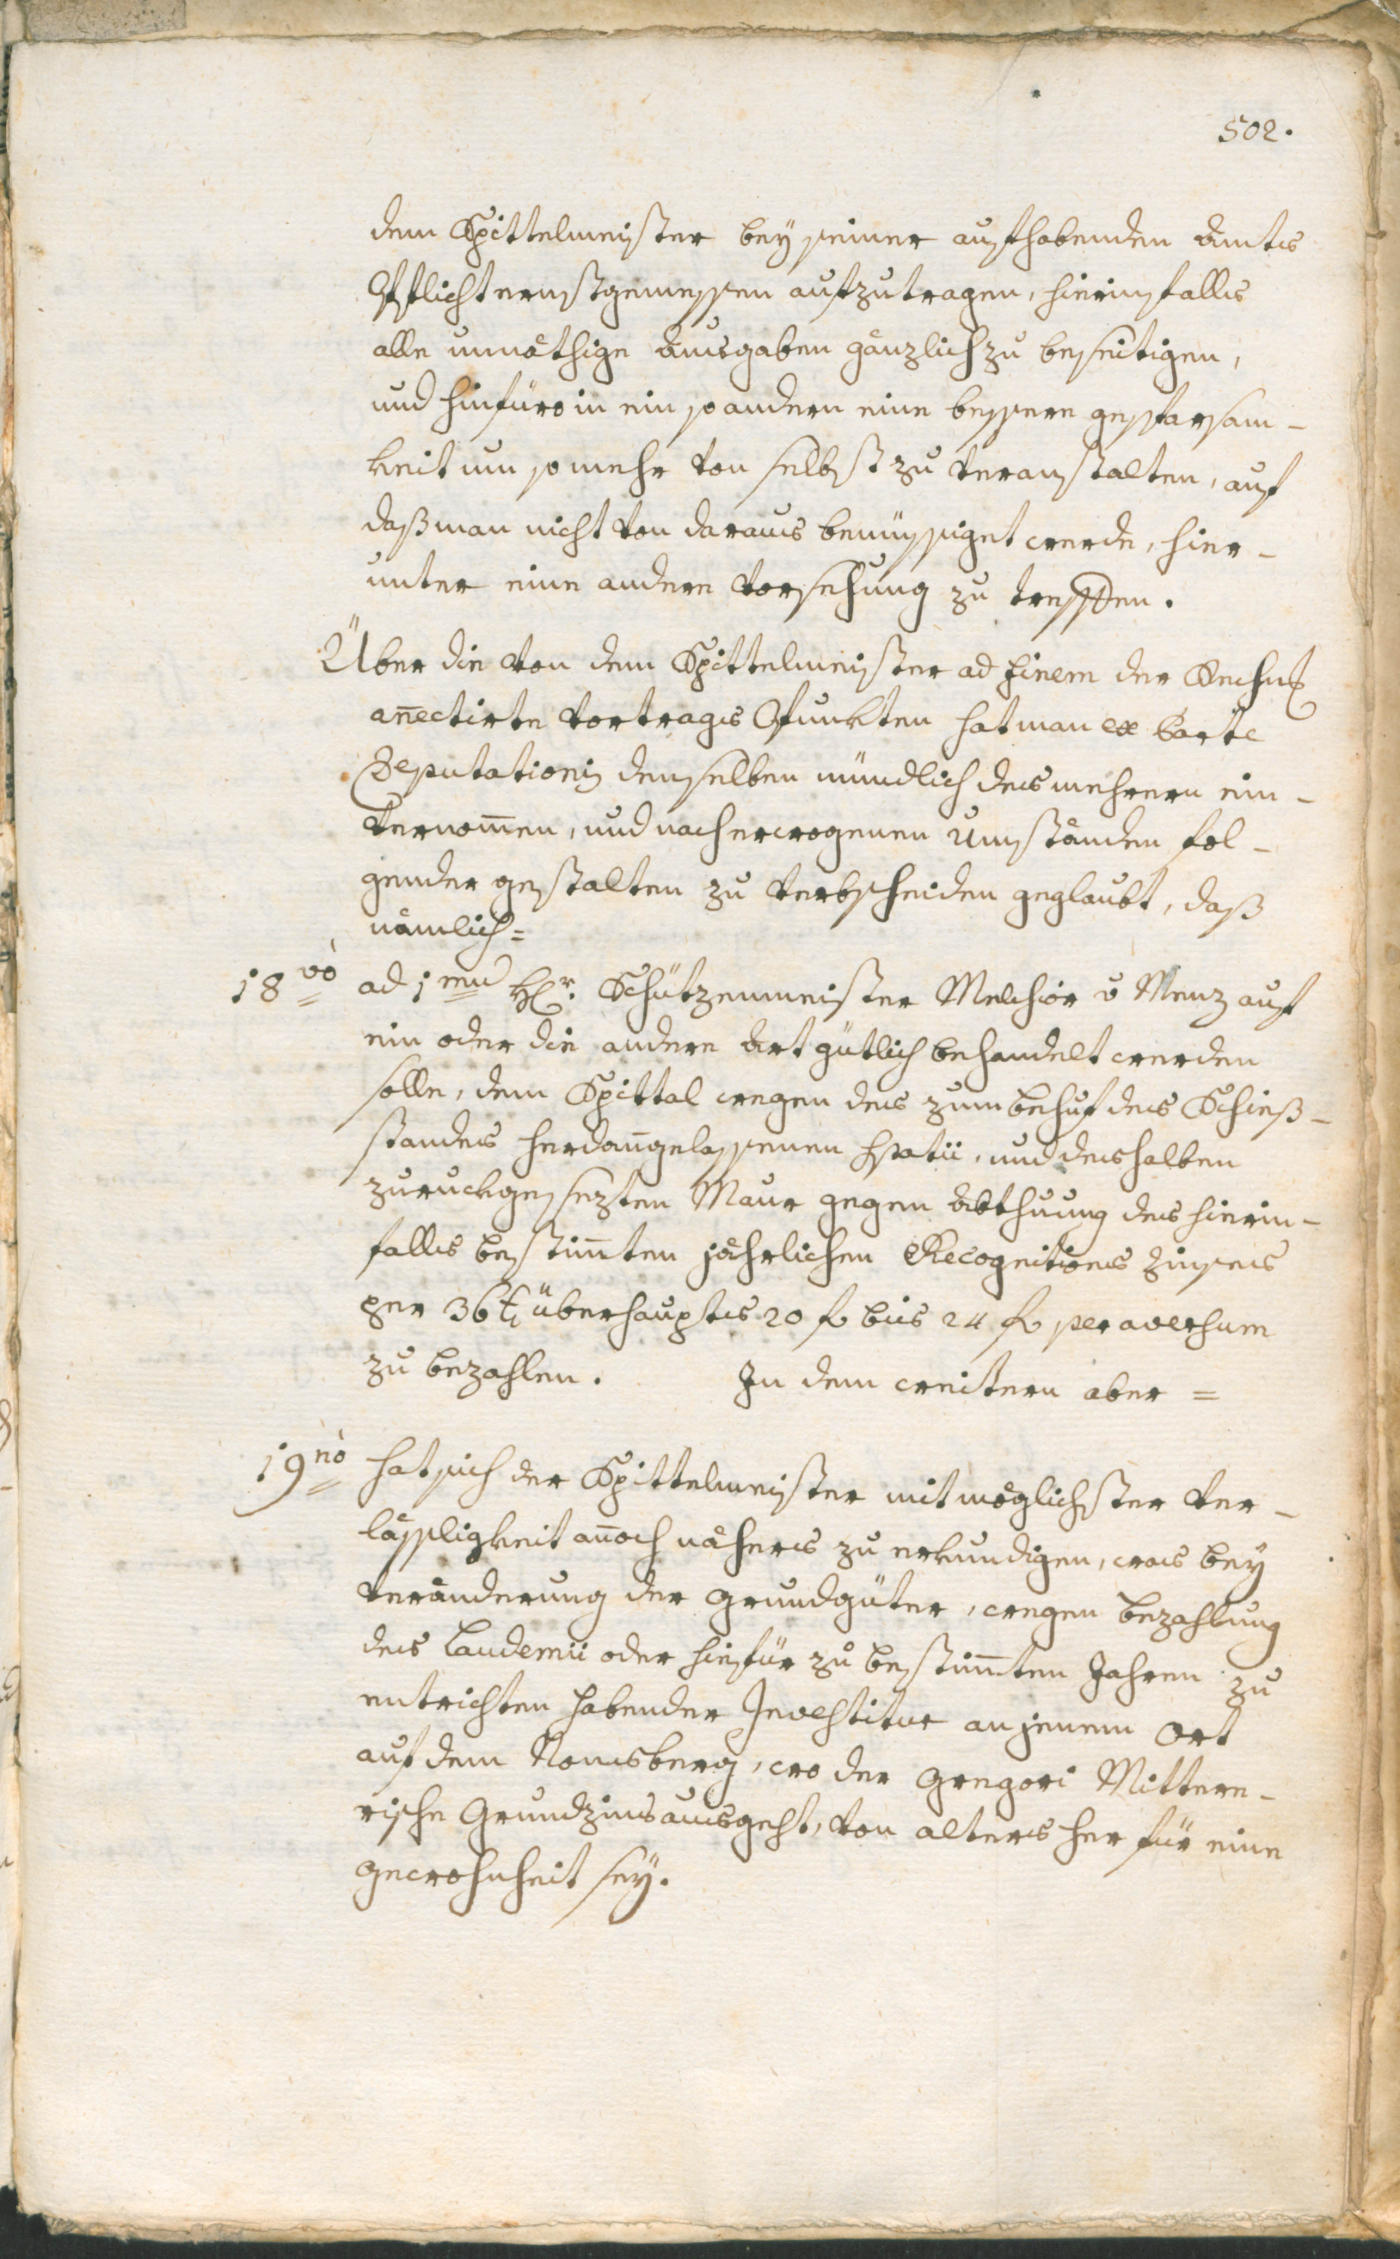 502.
dem Spittelmeister bey seiner aufhabenden Amts
Pflicht ernstgemessen aufzutragen, hierinfalls
alle unnöthige Ausgaben gänzlich zu beseitigen,
und hinfüro in ein so andern eine bessere gesparsam-
keit um so mehr von selbst zu veranstalten, auf
daß man nicht von daraus bemüssiget werde, hier-
unter eine andere Vorsehung zu treffen.
Über die von dem Spittelmeister ad finem der Rechnung
anectirte Vortrags Punkten hat man ex parte
Deputationis denselben mündlich des mehrern ein-
vernomen, und nach erwogenen Umständen fol-
gender gestalten zu verbscheiden geglaubt, daß
nämlich=
18vò ad 1mu Hr. Schützenmeister Melchior v Menz auf
ein oder die andere Art gütlich behandelt werden
solle, dem Spittal wegen des zum behuf des Schieß-
standes herdangelassenen spatii, und deshalben
zuruckgesezten Maur gegen Abthuung des hierin-
falls bestimten jährlichen Recognitions Zinses
per 36 x überhaupts 20 f bis 24 f per aversum
zu bezahlen. In dem weitern aber =
19nò hat sich der Spittelmeister mit möglichster Ver-
lässligkeit anoch nähers zu erkundigen, was bey
Veränderung der Grundgüter, wegen bezahlung
des Laudemii oder hiefür zu bestimten Jahren zu
entrichten habender Investitur an jenem Ort
auf dem Nonsberg, wo der Gregori Mittere-
rische Grundzins ausgeht, von alters her für eine
gewohnheit sey.